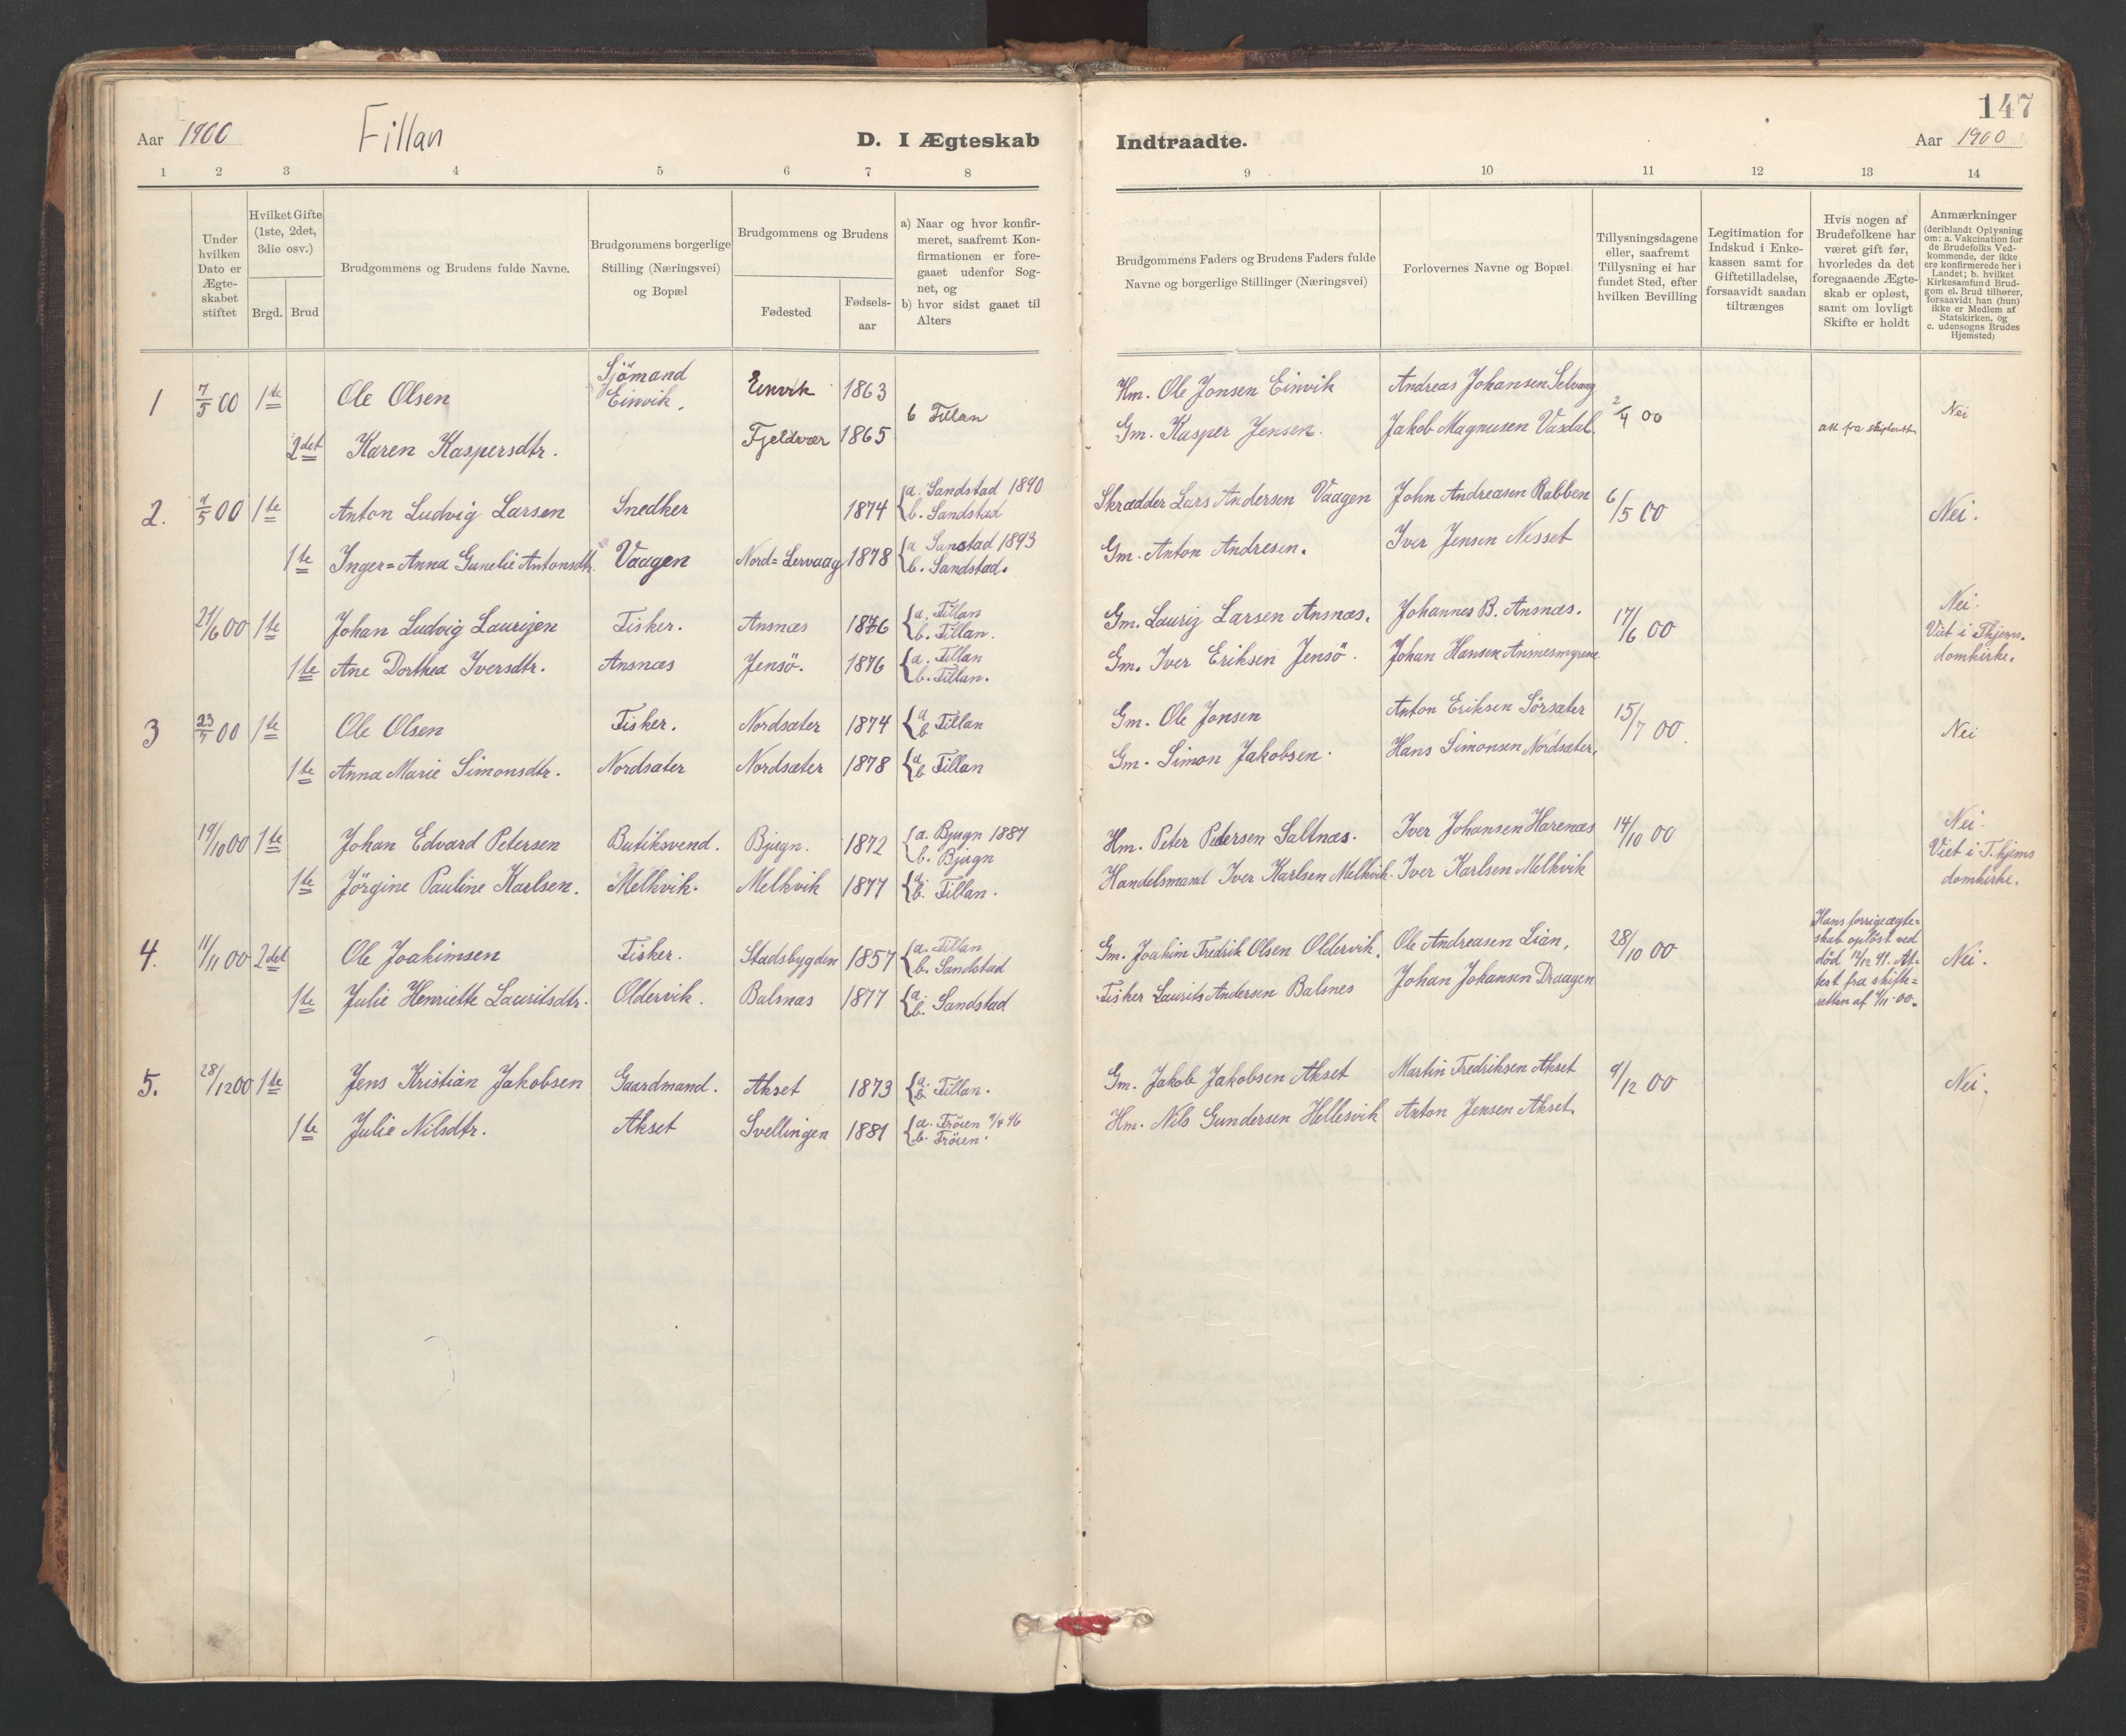 147
Aar 1900
Fillan
D. I Ægteskab
Indtraadte.
Aar 1900
1 2 3 4 5 6 7 8
9 10 11 12 13 14
Under hvilken Dato er Ægteskabet stiftet
Hvilket Gifte (1ste, 2det, 3die osv.)
Brgd. Brud
Brudgommens og Brudens fulde Navne.
Brudgommens borgerlige Stilling (Næringsvei) og Bopæl
Brudgommens og Brudens
Fødested
Fødselsaar
a) Naar og hvor konfirmeret, saafremt Konfirmationen er foregaaet udenfor Sognet, og
b) hvor sidst gaaet til Alters
Brudgommens Faders og Brudens Faders fulde Navne og borgerlige Stillinger (Næringsvei)
Forlovernes Navne og Bopæl
Tillysningsdagene eller, saafremt Tillysning ei har fundet Sted, efter hvilken Bevilling
Legitimation for Indskud i Enkekassen samt for Giftetilladelse, forsaavidt saadan tiltrænges
Hvis nogen af Brudefolkene har været gift før, hvorledes da det foregaaende Ægteskab er opløst, samt om lovligt Skifte er holdt
Anmærkninger (deriblandt Oplysning om: a. Vakcination for de Brudefolks Vedkommende, der ikke ere konfirmerede her i Landet; b. hvilket Kirkesamfund Brudgom el. Brud tilhører, forsaavidt han (hun) ikke er Medlem af Statskirken, og c. udensogns Brudes Hjemsted)
1 7/5 00 1te Ole Olsen Sjömand Einvik. Einvik 1863 b Fillan Hm. Ole Jonsen Einvik Andreas Johansen Selvaag 2/4 00 Nei
2det Karen Kaspersdtr. Fjeldvær 1865 Gm. Kasper Jensen. Jakob Magnusen Vaxdal att fra skifterett.
2. 9/5 00 1te Anton Ludvig Larsen Snedker 1874 a. Sandstad 1890 b. Sandstad Skrædder Lars Andersen Vaagen John Andreasen Rabben 6/5 00 Nei.
1te Inger=Anna Gunelie Antonsdtr. Vaagen Nord=Lervaag 1878 a Sanstad 1893 b. Sandstad. Gm. Anton Andresen. Iver Jensen Nesset
21/6 00 1te Johan Ludvig Laurizen Fisker. Ansnæs 1876 a. Fillan b. Fillan. Gm. Lauriz Larsen Ansnæs. Johannes B. Ansnæs. 17/6 00 Nei. Viet i Thjems. domkirke.
1te Ane Dorthea Iversdtr. Ansnæs Jensö. 1876 a. Fillan b. Fillan. Gm. Iver Eriksen Jensö. Johan Hansen
3 23/7 00 1te Ole Olsen Fisker. Nordsæter 1874 a b Fillan Gm. Ole Jonsen Anton Eriksen Sörsæter 15/7 00. Nei
1te Anna Marie Simonsdtr. Nordsæter Nordsæter 1878 a b Fillan Gm. Simon Jakobsen. Hans Simonsen Nordsæter.
19/10 00 1te Johan Edvard Petersen Butiksvend. Bjugn. 1872 a. Bjugn 1887 b. Bjugn Hm. Peter Petersen Saltnæs. Iver Johansen Havenæs 14/10 00 Nei. Viet i T.hjems domkirke.
1te Jörgine Pauline Karlsen. Melkvik. Melkvik 1877 a. b. Fillan. Handelsmand Iver Karlsen Melkvik. Iver Karlsen Melkvik
4. 11/11 00 2det Ole Joakimsen Fisker. Stadsbygden 1857 a. Fillan b. Sandstad Gm. Joakim Fredrik Olsen Oldervik. Ole Andreasen Lian, 28/10 00 Hans forrige ægteskab oplöst ved död 12/12 91. Attest fra skifteretten af 9/11-00. Nei.
1te Julie Henriette Lauritsdtr. Oldervik. Balsnæs 1877 a. b. Sandstad Fisker Laurits Andersen Balsnes Johan Johansen Draagen
5. 28/12 00 1te Jens Kristian Jakobsen Gaardmand. Akset 1873 a. b. Fillan. Gm. Jakob Jakobsen Akset Martin Fredriksen Akset 9/12 00 Nei.
1te Julie Nilsdtr. Akset Svellingen 1881 a. Fröien 9/4 96 b. Fröien. Hm. Nils Gundersen Hellesvik Anton Jensen Akset.